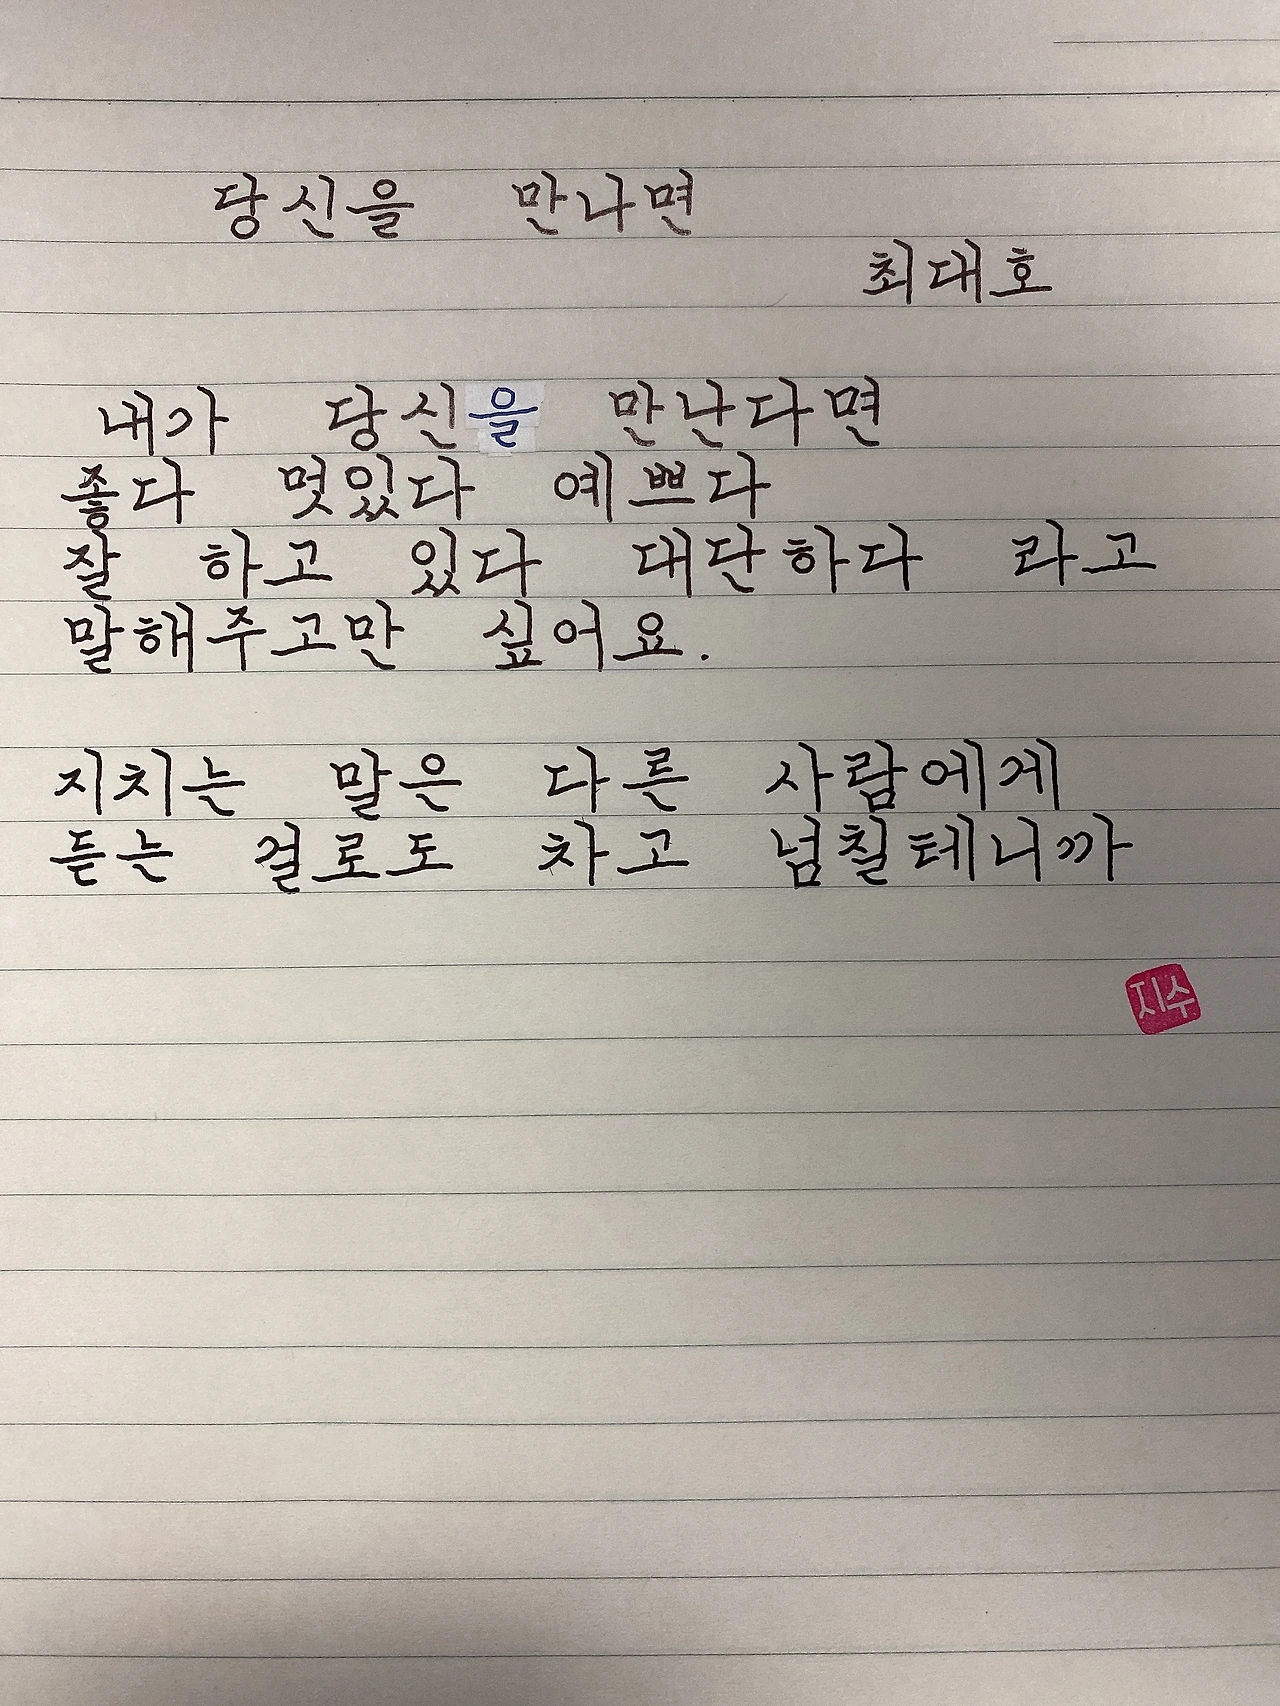 당신을 만나면
최대호
내가 당신을 만난다면
좋다 멋있다 예쁘다
잘 하고 있다 대단하다 라고
말해주고만 싶어요.
지치는 말은 다른 사람에게
듣는 걸로도 차고 넘칠테니까
지수